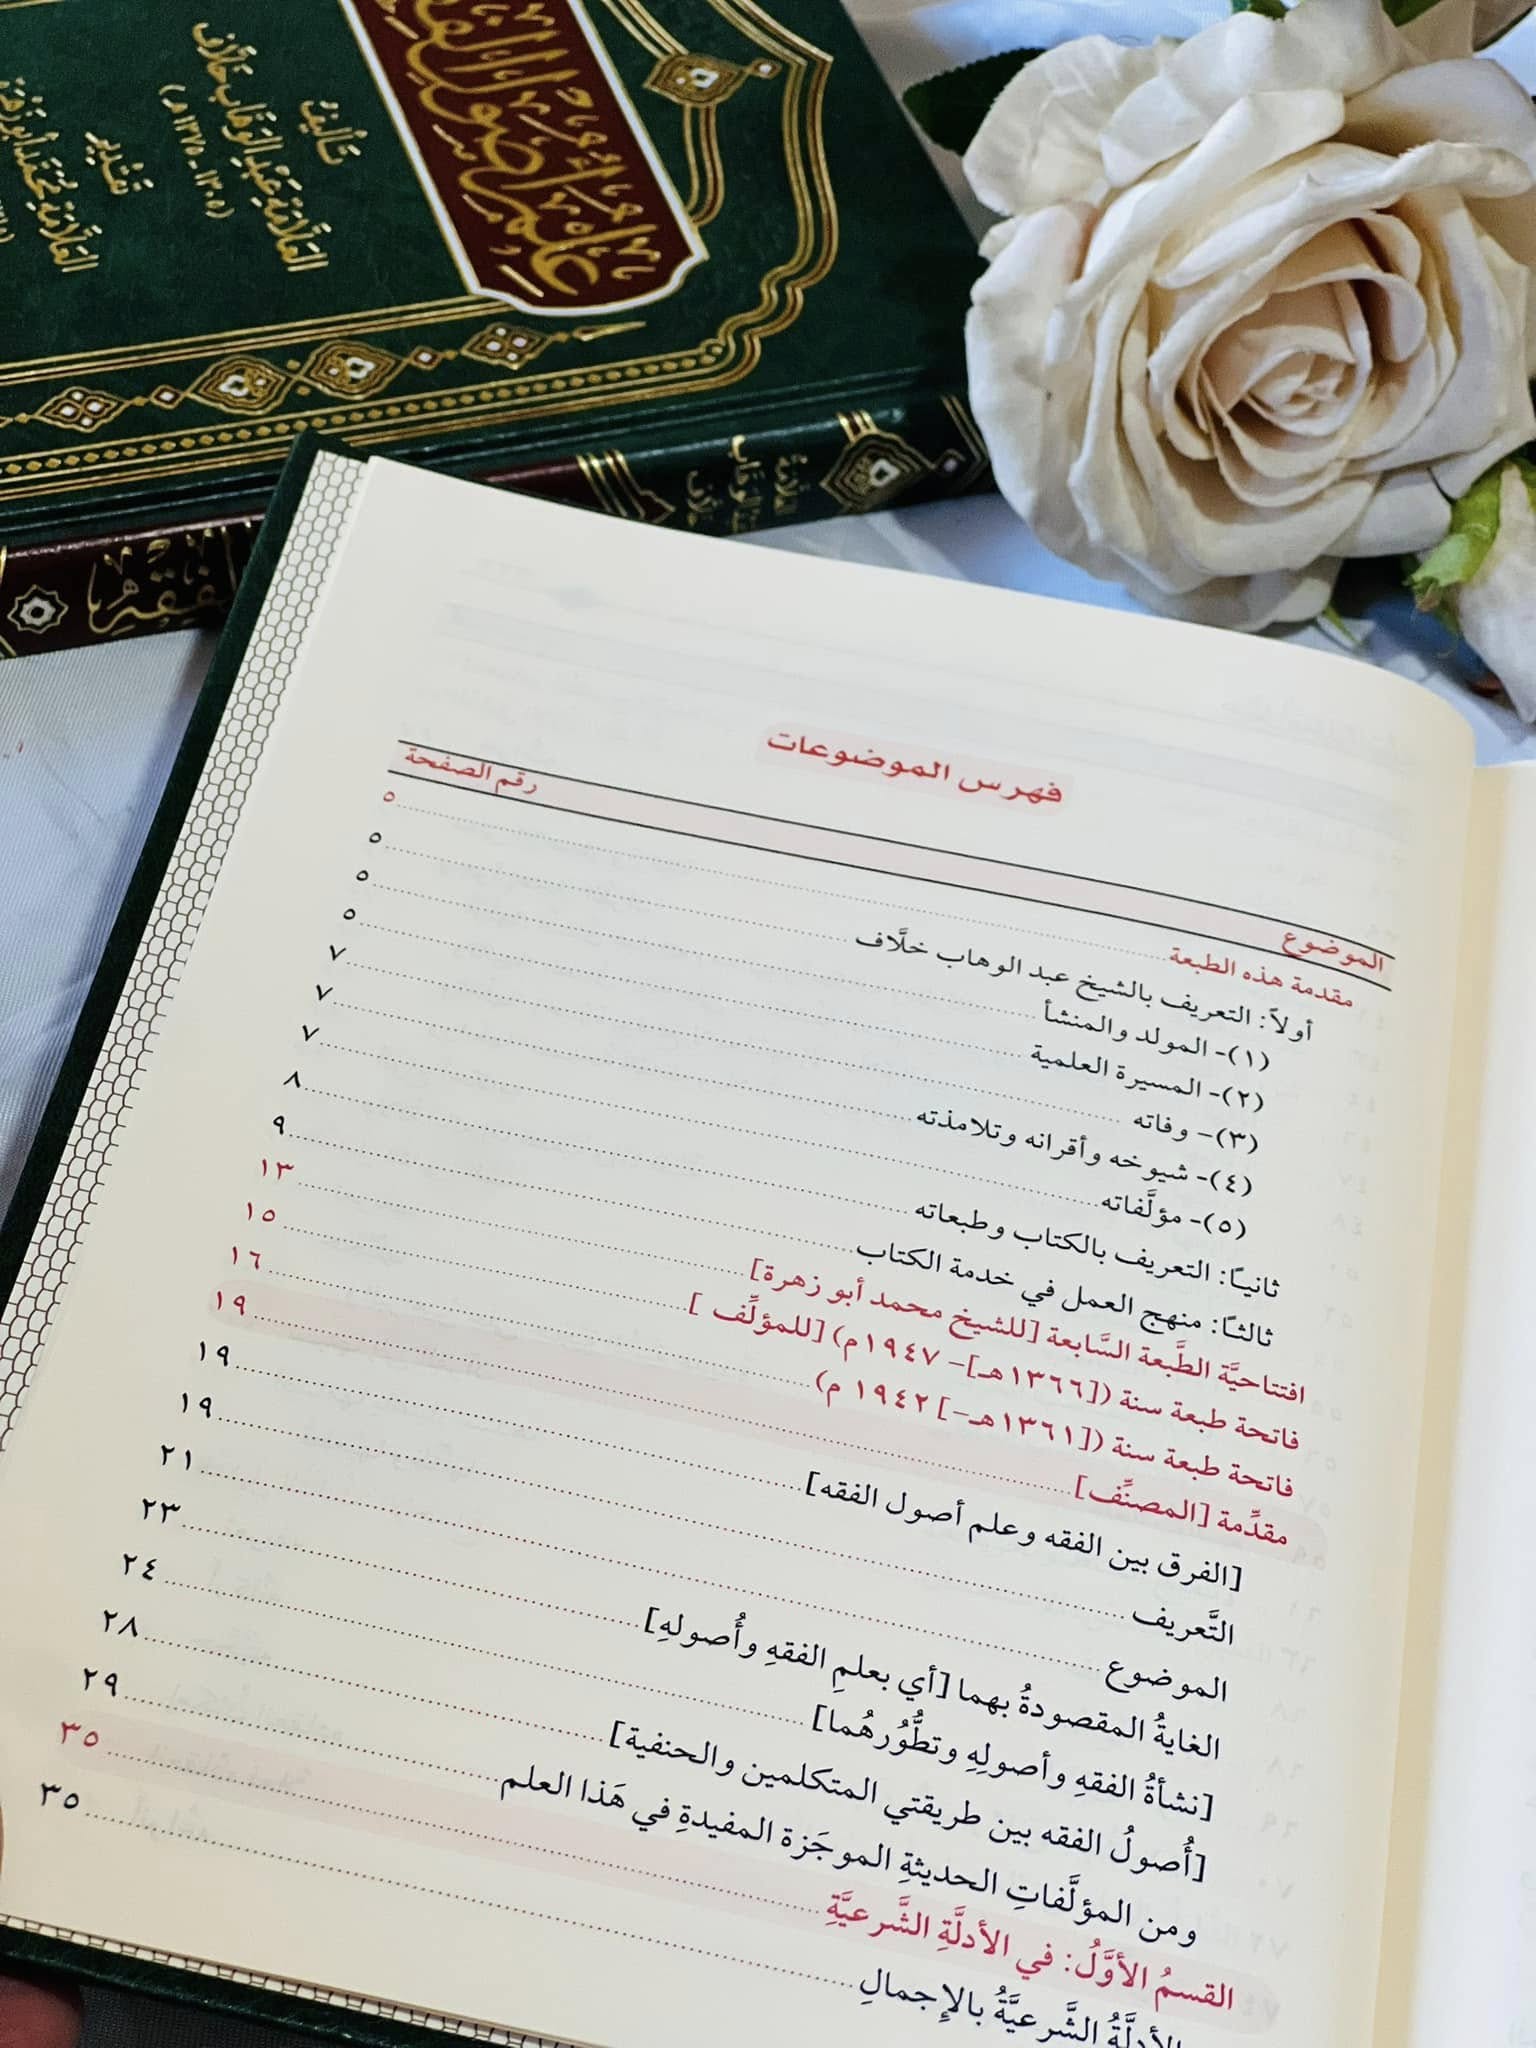 علم أصول الفقه
تأليف
العلامة عبد الوهاب خلاف
(١٣٠٥ - ١٣٧٥ هـ)
تقديم
العلامة محمد أبو زهرة
الفقه
العلامة
عبد الوهاب
خلاف
فهرس الموضوعات
الموضوع رقم الصفحة
مقدمة هذه الطبعة ٥
أولاً: التعريف بالشيخ عبد الوهاب خلَّاف ٥
(١)- المولد والمنشأ ٥
(٢)- المسيرة العلمية ٥
(٣)- وفاته ٧
(٤)- شيوخه وأقرانه وتلامذته ٧
(٥)- مؤلَّفاته ٧
ثانيـًا: التعريف بالكتاب وطبعاته ٨
ثالثـًا: منهج العمل في خدمة الكتاب ٩
افتتاحيَّة الطَّبعة السَّابعة [للشيخ محمد أبو زهرة] ١٣
فاتحة طبعة سنة ([١٣٦٦هـ]- ١٩٤٧م) [للمؤلِّف ] ١٥
فاتحة طبعة سنة ([١٣٦١هـ-] ١٩٤٢ م) ١٦
مقدِّمة [المصنِّف] ١٩
[الفرق بين الفقه وعلم أصول الفقه] ١٩
التَّعريف ١٩
الموضوع ٢١
الغايةُ المقصودةُ بهما [أي بعلمِ الفقهِ وأُصولهِ] ٢٣
[نشأةُ الفقهِ وأصولِهِ وتطُّوُرهُما] ٢٤
[أُصولُ الفقه بين طريقتي المتكلمين والحنفية] ٢٨
ومن المؤلَّفاتِ الحديثةِ الموجَزة المفيدةِ في هَذا العلم ٢٩
القسمُ الأوَّلُ: في الأدلَّةِ الشَّرعيَّةِ ٣٥
الأدلَّةُ الشَّرعيَّةُ بالإجمالِ ٣٥